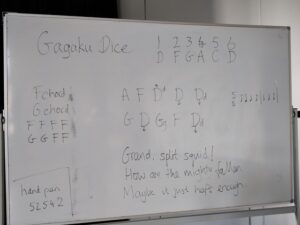 Gagaku Dice
1 2 3 4 5 6
D F G A C D
F chord:
G chord:
F F F F
G G F F
A F D D D
G D G F D
Grand, split squid!
How are the mighty fallen
Maybe it just hasn't enough
hand pan
52542